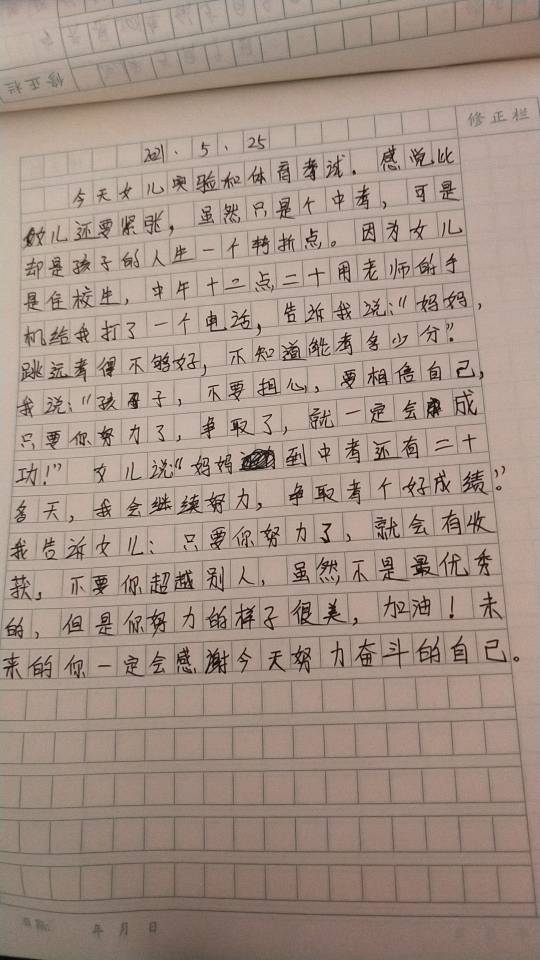 修正栏
修正栏
2021.5.25
今天女儿实验和体育考试。感觉比
女儿还要紧张，虽然只是个中考，可是
却是孩子的人生一个转折点。因为女儿
是住校生，中午十二点二十用老师的手
机给我打了一个电话，告诉我说：“妈妈，
跳远考得不够好，不知道能考多少分”。
我说：“孩子，不要担心，要相信自己，
只要你努力了，争取了，就一定会成
功！” 女儿说“妈妈到中考还有二十
多天，我会继续努力，争取考个好成绩”。
我告诉女儿：只要你努力了，就会有收
获，不要你超越别人，虽然不是最优秀
的，但是你努力的样子很美，加油！未
来的你一定会感谢今天努力奋斗的自己。
年 月 日